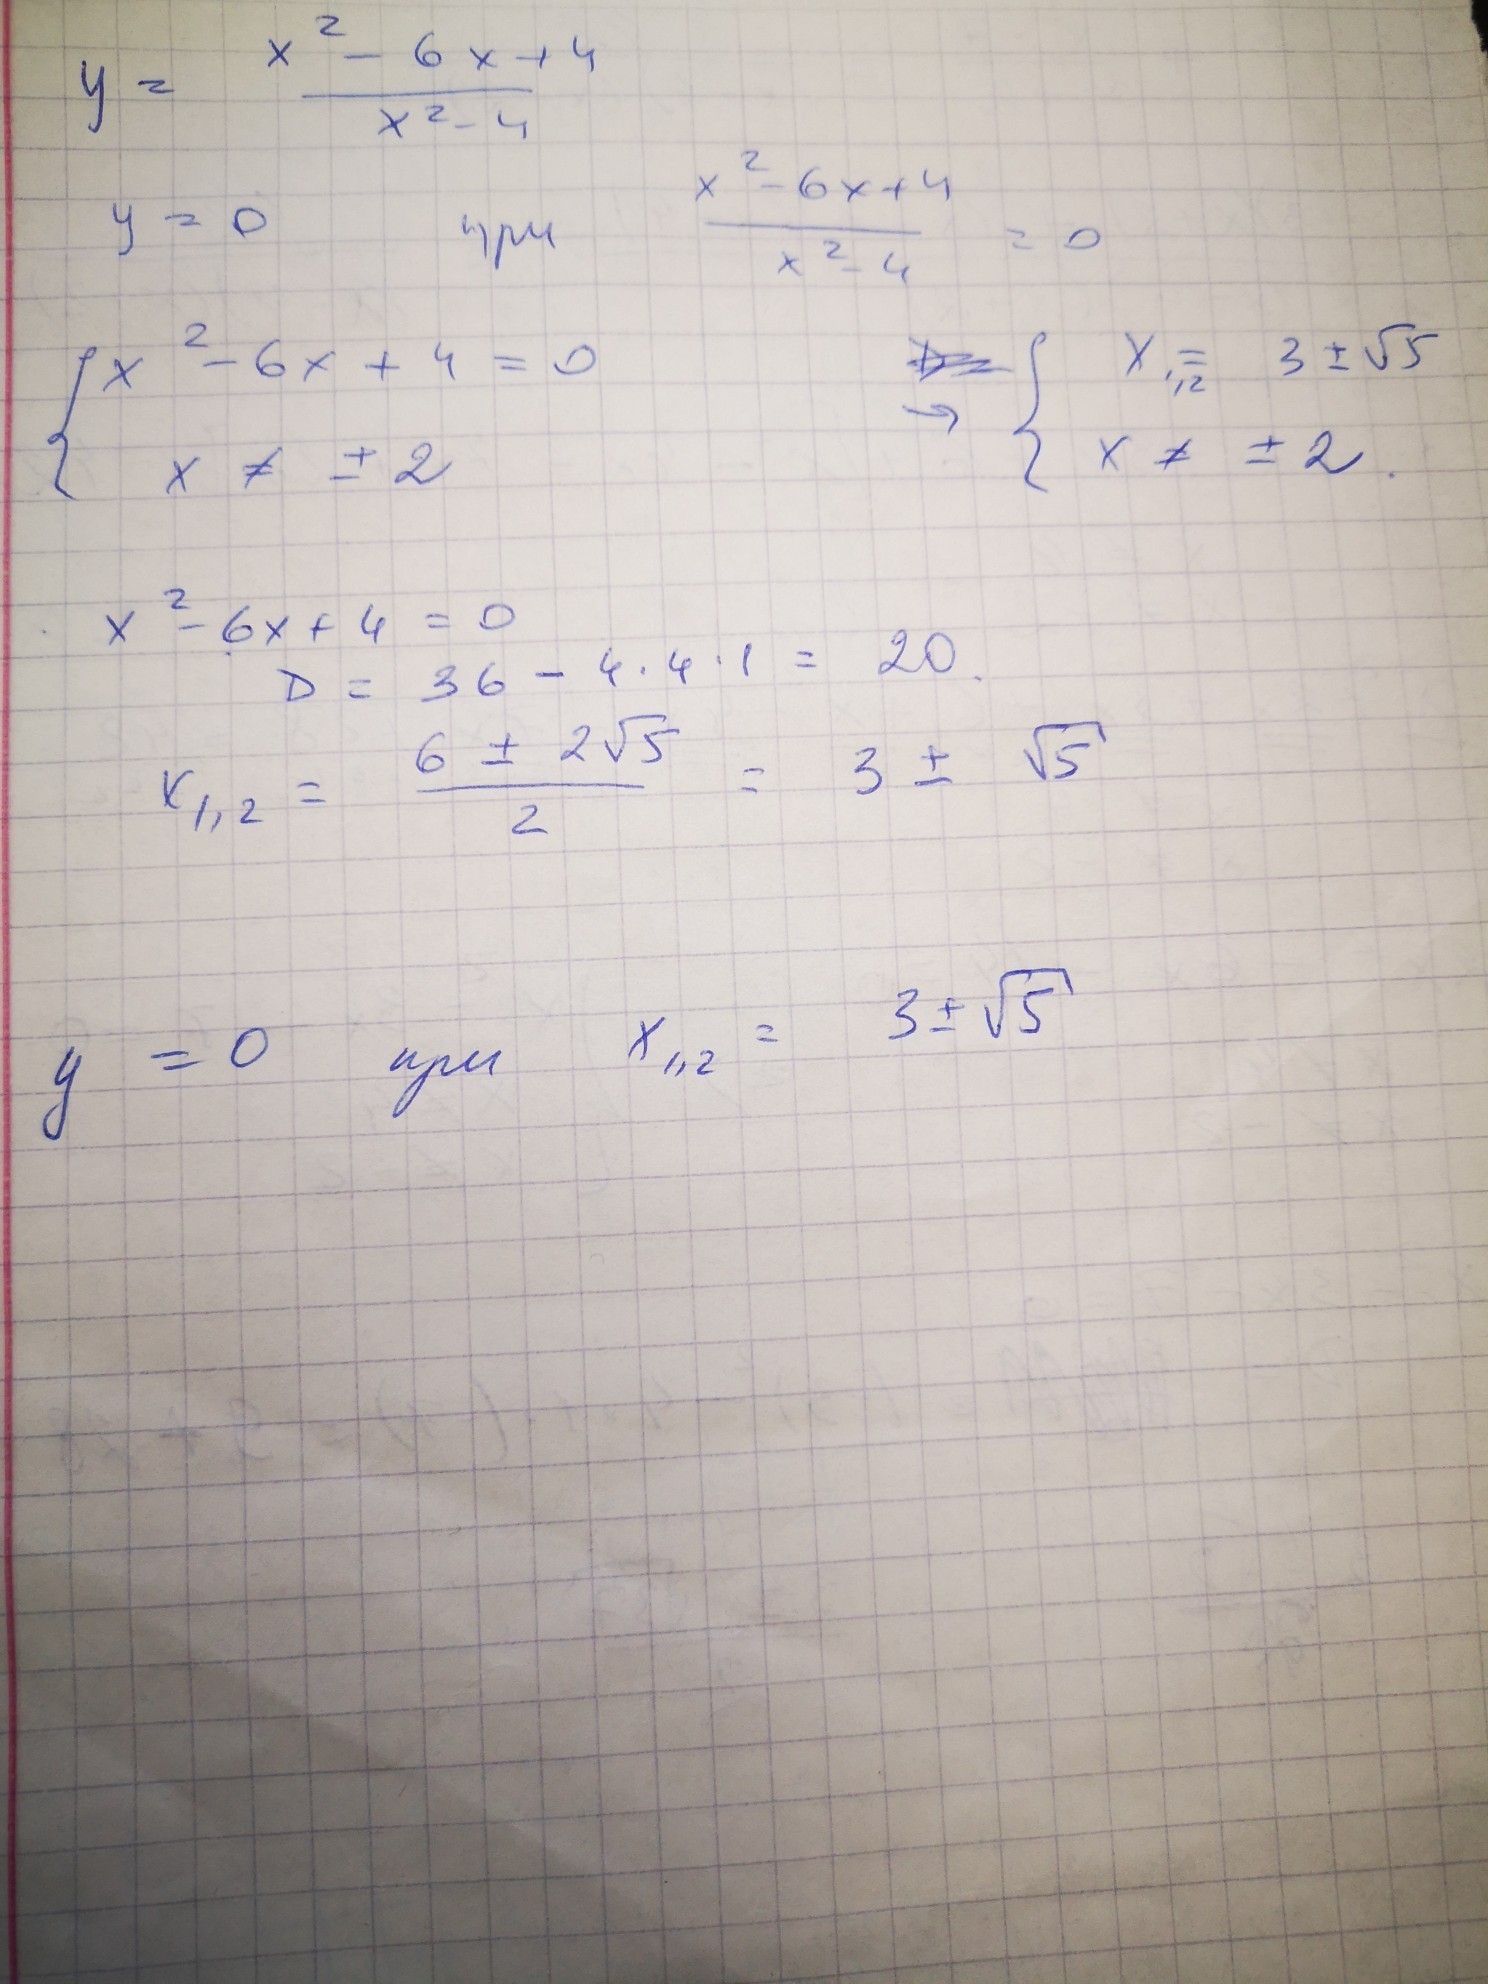 y = (x² - 6x + 4)/(x² - 4)
y = 0 при (x² - 6x + 4)/(x² - 4) = 0
{ x² - 6x + 4 = 0 → { x₁,₂ = 3 ± √5
x ≠ ± 2 x ≠ ± 2.
x² - 6x + 4 = 0
D = 36 - 4 · 4 · 1 = 20.
x₁,₂ = (6 ± 2√5)/2 = 3 ± √5
y = 0 при x₁,₂ = 3 ± √5